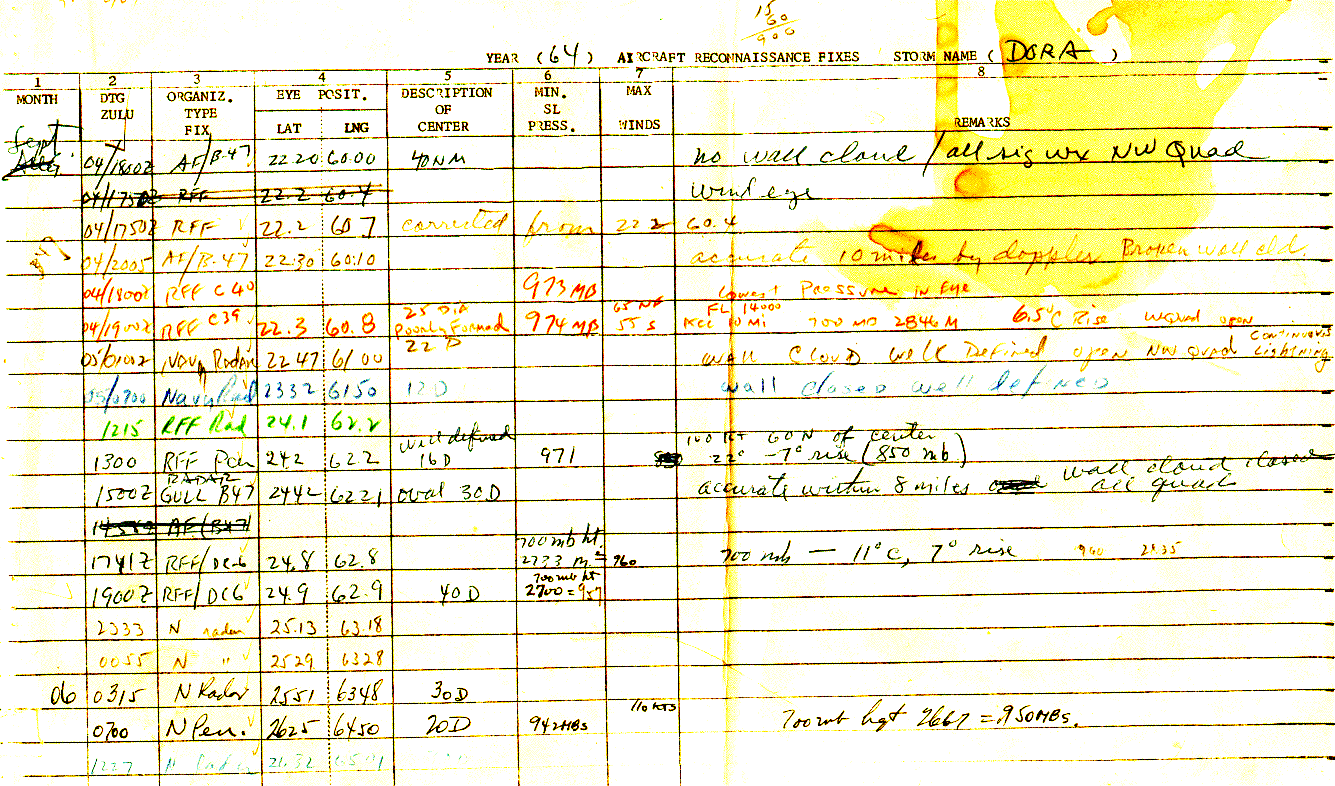 15
60
900
YEAR (64) AIRCRAFT RECONNAISSANCE FIXES STORM NAME (DORA)
1 2 3 4 5 6 7 8
MONTH DTG ZULU ORGANIZ. TYPE FIX EYE POSIT. LAT LNG DESCRIPTION OF CENTER MIN. SL PRESS. MAX WINDS REMARKS
Sept 04/1800Z AF/B-47 22.20 60.00 40NM no wall cloud / all sig wx NW Quad
04/1750Z RFF 22.2 60.4 wind eye
04/1750Z RFF 22.2 60.7 corrected from 22.2 60.4
04/2005 AF/B-47 22.30 60.10 accurate 10 miles by doppler Broken wall cld.
04/1800Z RFF C40 973 MB Lowest Pressure in Eye
04/1900Z RFF C39 22.3 60.8 25 DIA Poorly Formed 974 MB 65 NE 55 S FL 14000 Acc 10 Mi 700 MB 2846 M 6.5°C Rise W Quad open
05/0100Z Navy Radar 22 47 61 00 22 D wall CLOUD well Defined open NW Quad CONTINUOUS Lightning
05/0700 Navy Rad 2332 6150 12D wall closed well defined
1215 RFF Rad 24.1 62.2
1300 RFF Pen 242 62.2 well defined 16D 971 100 KT 60N of center 22° -7° rise (850 mb)
1500Z RADAR GULL B47 2442 6221 oval 30D accurate within 8 miles wall cloud closed all quad
AF/(B47)
1741Z RFF/DC-6 24.8 62.8 700 mb ht. 2733 M. = 960 700 mb — 11°C, 7° rise 960 2835
1900Z RFF/DC6 24.9 62.9 40D 700 mb ht 2700 = 957
2333 N radar 25.13 63.18
0055 N " 2529 6328
06 0315 N Radar 2551 6348 30D
0700 N Pen. 2625 6450 20D 942MBs 110 KTS 700 mb hgt 2667 = 950MBs.
1237 N Radar 2632